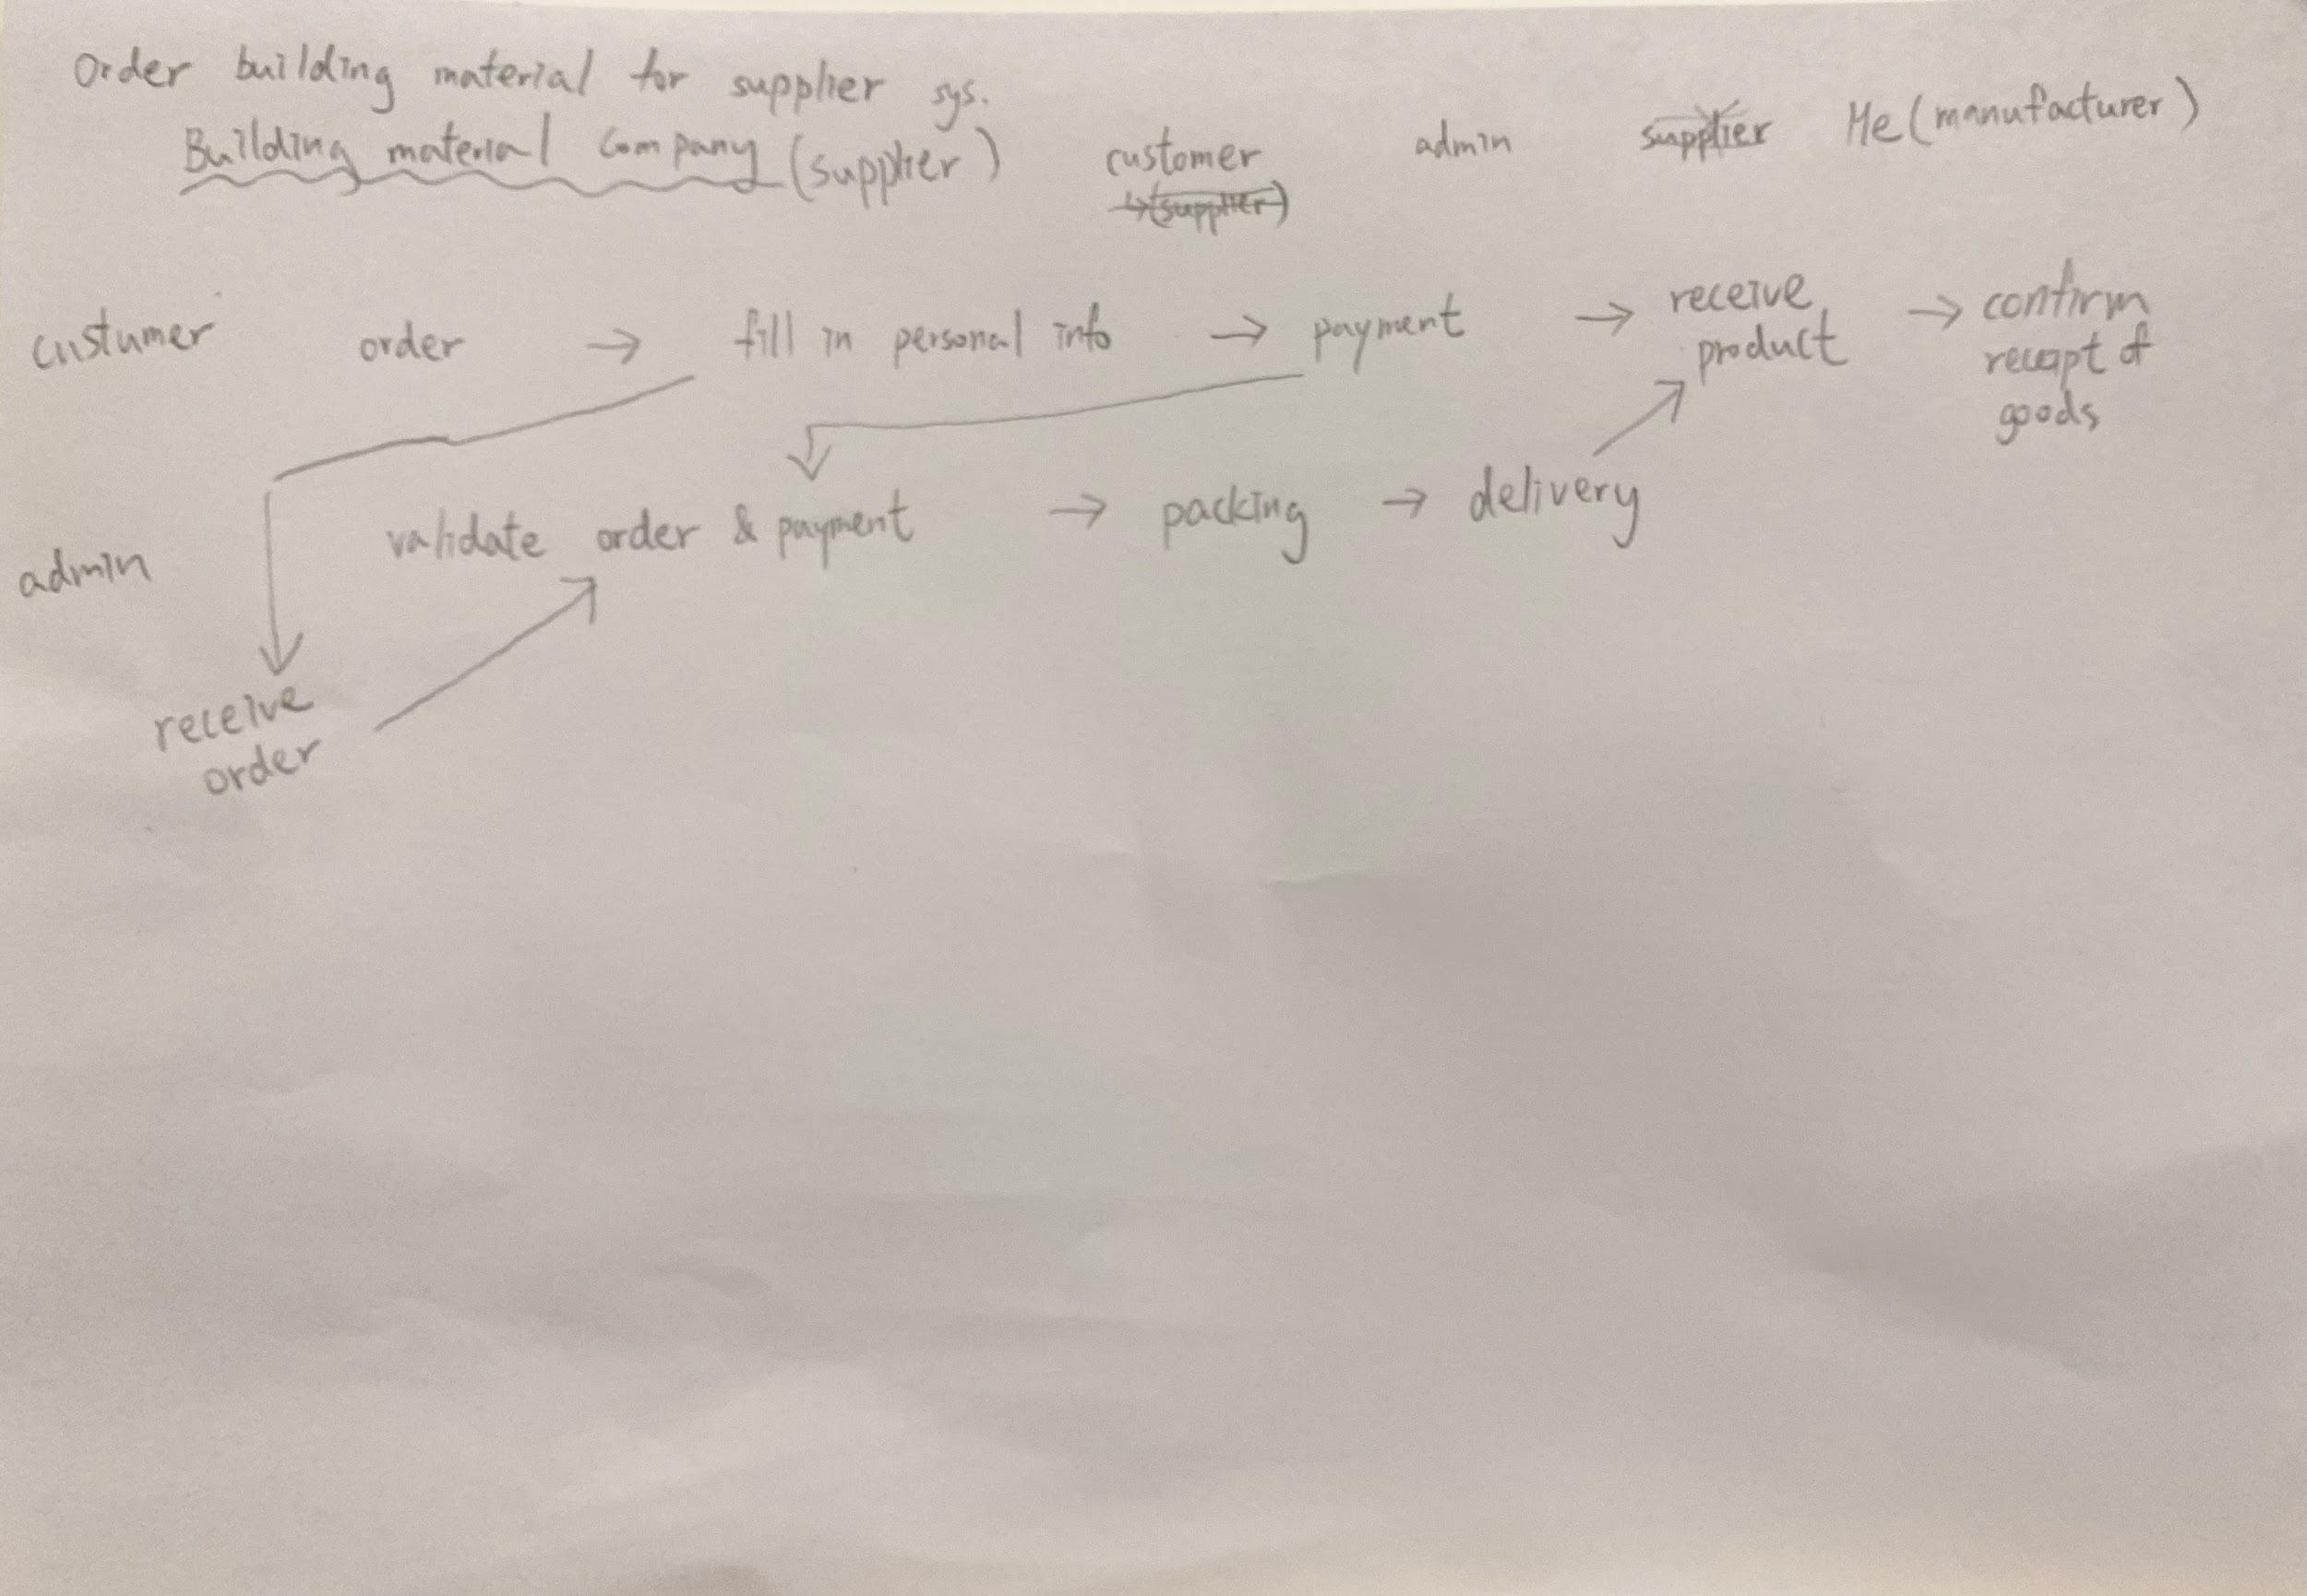 Order building material for supplier sys.
Building material Company (supplier) customer admin supplier Me (manufacturer)
↳(supplier)
custumer order → fill in personal info → payment → receive product → confirm receipt of goods
admin validate order & payment → packing → delivery
receive
order